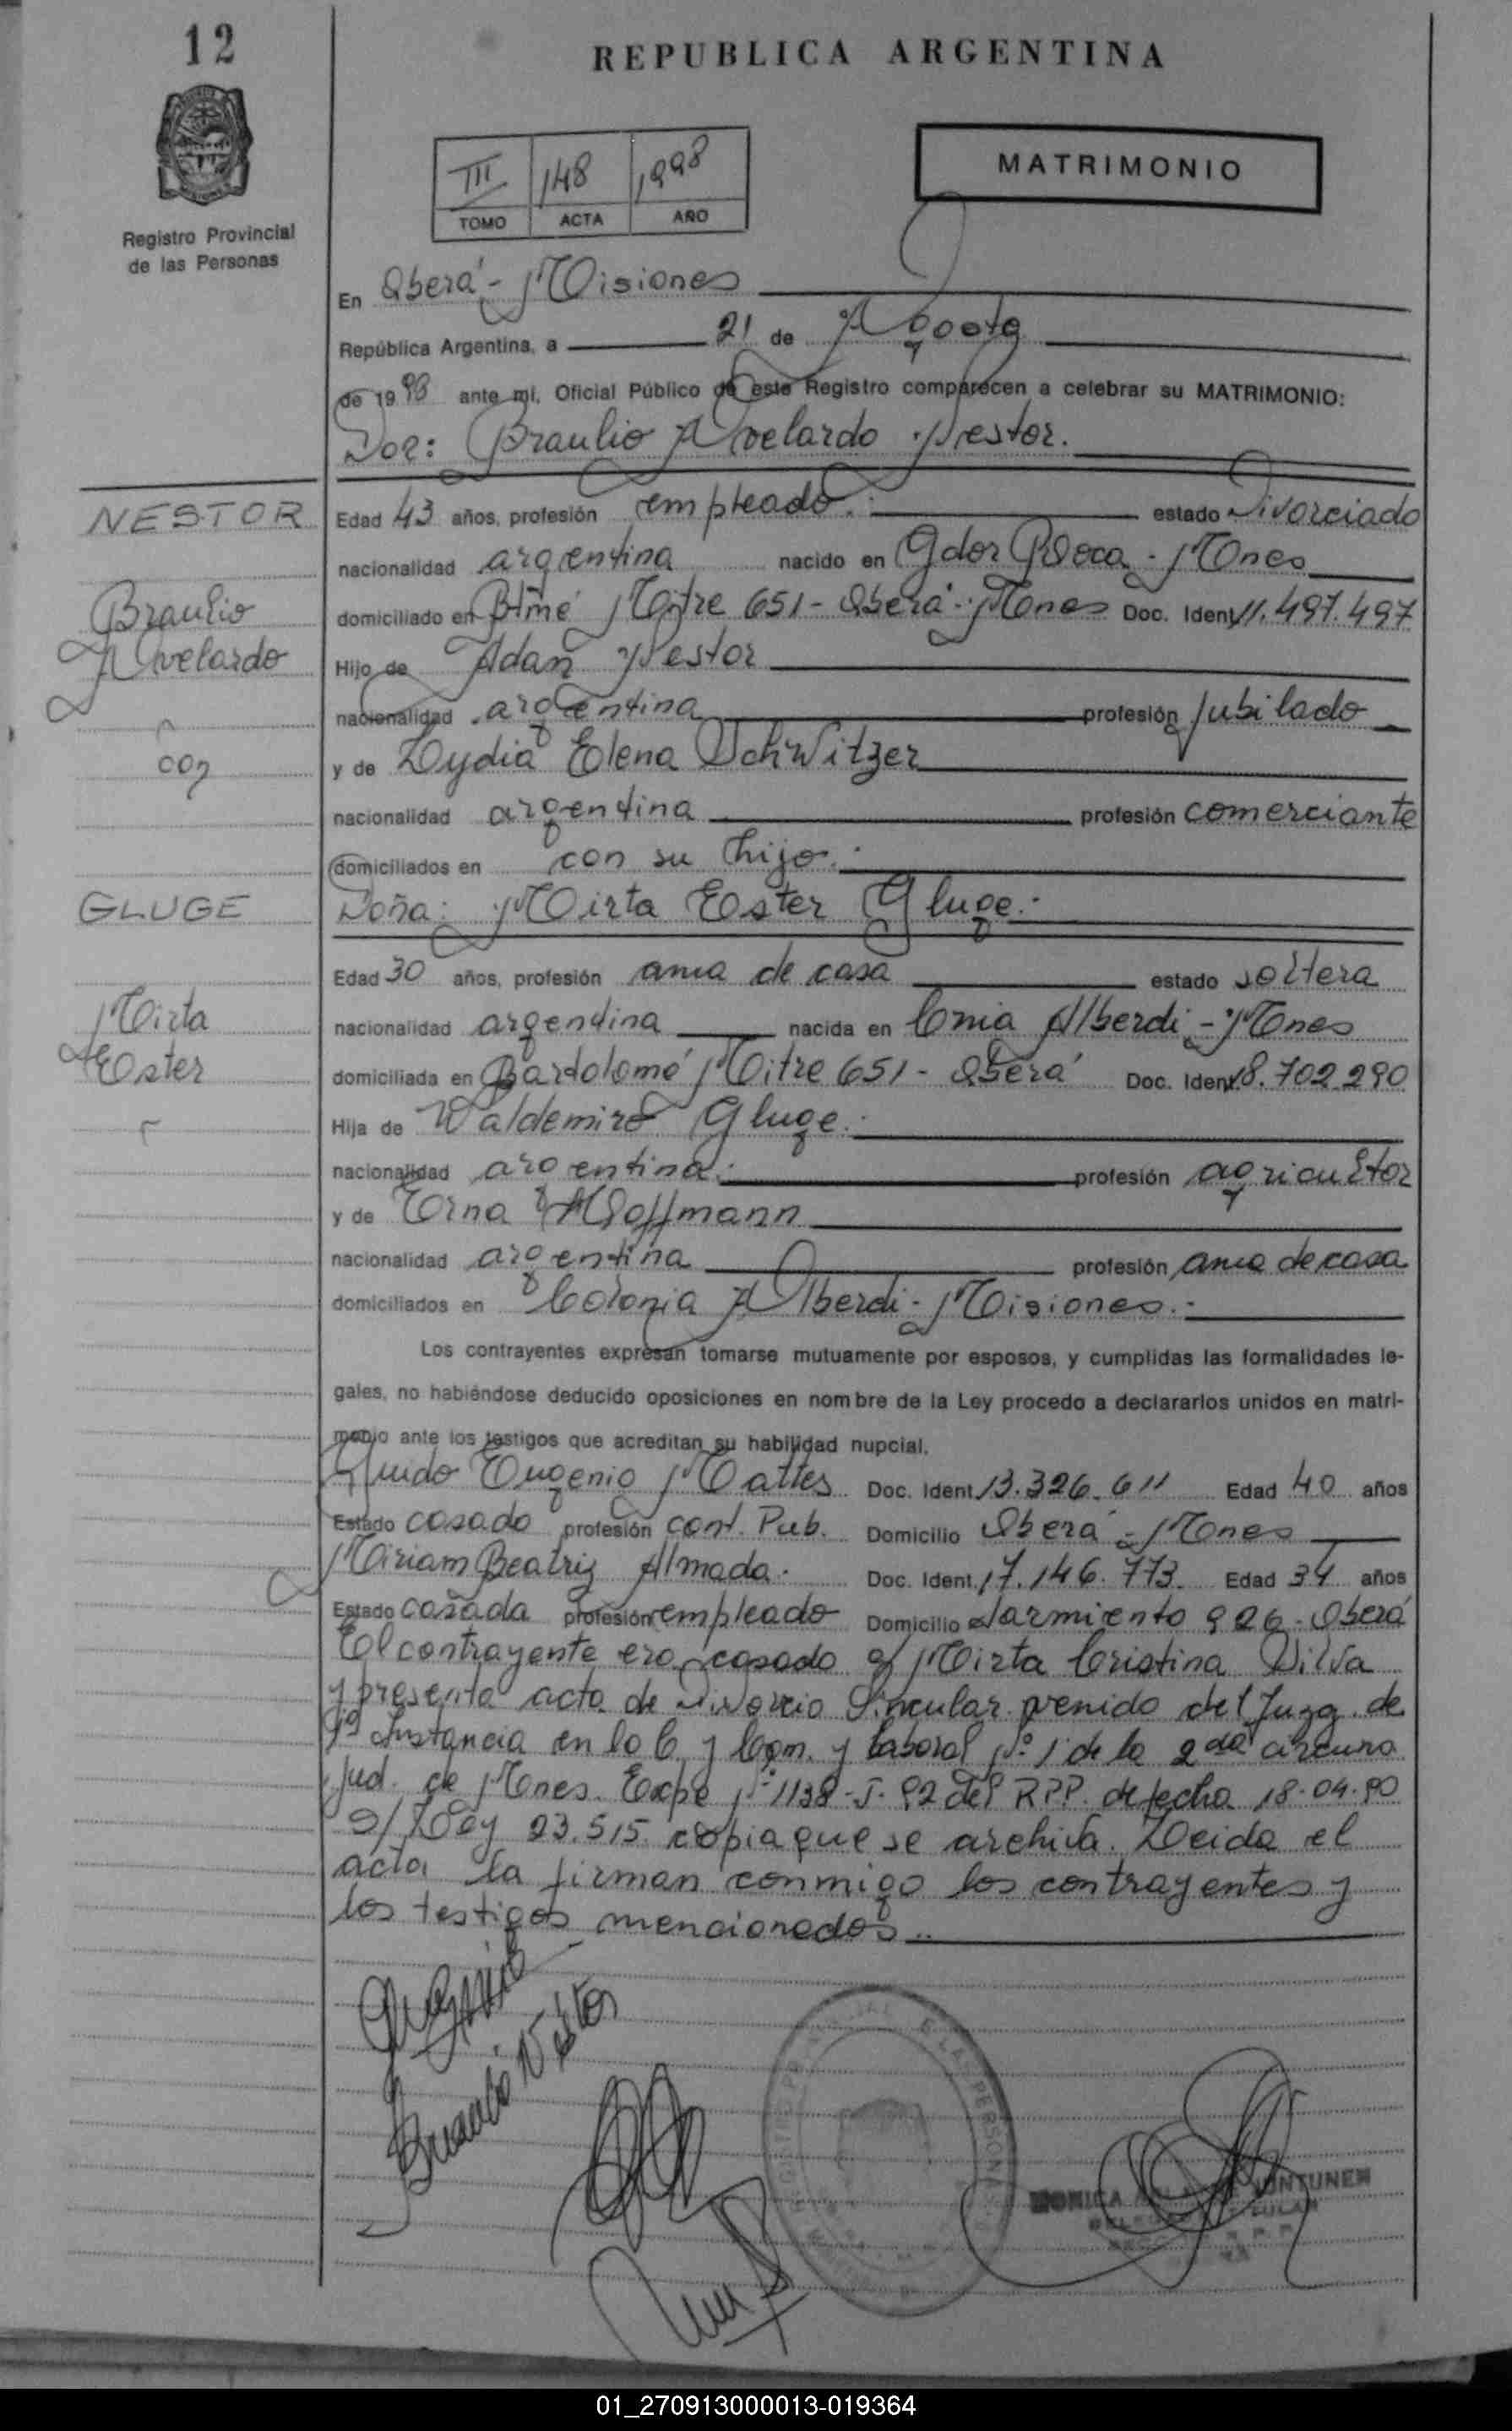 12
REPUBLICA ARGENTINA
Registro Provincial
de las Personas
III 148 1998
TOMO ACTA AÑO
MATRIMONIO
En Oberá - Misiones
República Argentina, a 21 de Agosto
de 1998 ante mi, Oficial Público de este Registro comparecen a celebrar su MATRIMONIO:
Don: Braulio Avelardo Nestor.
NESTOR
Braulio
Avelardo
con
GLUGE
Mirta
Ester
Edad 43 años, profesión empleado.- estado Divorciado
nacionalidad argentina nacido en Gdor Roca - Mnes
domiciliado en Btmé Mitre 651 - Oberá - Mnes Doc. Ident 11.497.497
Hijo de Adan Nestor
nacionalidad argentina profesión jubilado
y de Lydia Elena Schwitzer
nacionalidad argentina profesión comerciante
domiciliados en con su hijo.-
Doña: Mirta Ester Gluge.-
Edad 30 años, profesión ama de casa estado soltera
nacionalidad argentina nacida en Cnia Alberdi - Mnes
domiciliada en Bartolomé Mitre 651 - Oberá Doc. Ident 18.702.290
Hija de Waldemiro Gluge.-
nacionalidad argentina.- profesión agricultor
y de Erna Hoffmann
nacionalidad argentina profesión ama de casa
domiciliados en Colonia Alberdi - Misiones.-
Los contrayentes expresan tomarse mutuamente por esposos, y cumplidas las formalidades le-
gales, no habiéndose deducido oposiciones en nombre de la Ley procedo a declararlos unidos en matri-
monio ante los testigos que acreditan su habilidad nupcial.
Guido Eugenio Mattes Doc. Ident. 13.326.611 Edad 40 años
Estado casado profesión cont. Pub. Domicilio Oberá - Mnes
Miriam Beatriz Almada. Doc. Ident. 17.146.773. Edad 34 años
Estado casada profesión empleado Domicilio Sarmiento 926 - Oberá
El contrayente era casado c/ Mirta Cristina Silva
y presenta acta de Divorcio Vincular venido del Juzg. de
1º Instancia en lo C. y Com. y Laboral Nº 1 de la 2da circuns
Jud. de Mnes. Expe Nº 1138-J-92 del RPP. de fecha 18-04-90
s/ Ley 23.515 copia que se archiva. Leida el
acta la firman conmigo los contrayentes y
los testigos mencionados..
Braulio Nestor
01_270913000013-019364